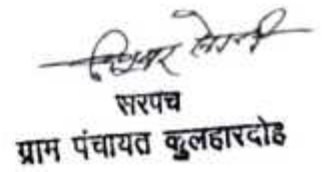 सरपंच
ग्राम पंचायत कुलहारदोह